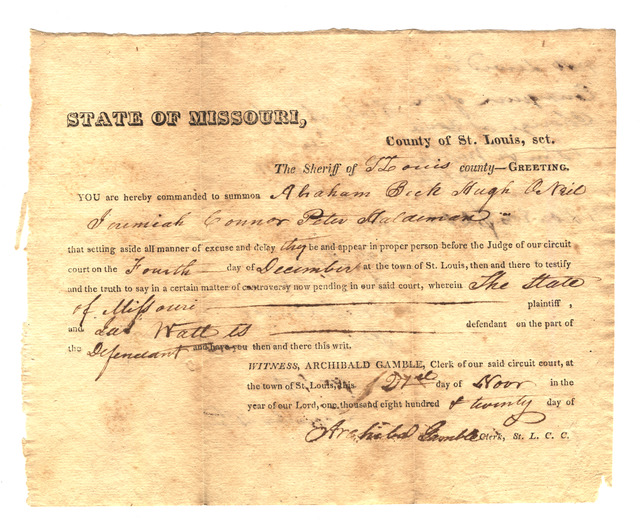 STATE OF MISSOURI,
County of St. Louis, sct.
The Sheriff of St Louis county—GREETING.
YOU are hereby commanded to summon Abraham Beck Hugh O Neil
Jeremiah Connor Peter Haldeman
that setting aside all manner of excuse and delay they be and appear in proper person before the Judge of our circuit
court on the Fourth day of December at the town of St. Louis, then and there to testify
and the truth to say in a certain matter of controversy now pending in our said court, wherein The State
of Missouri plaintiff,
and Watts defendant on the part of
the Defendant and have you then and there this writ.
WITNESS, ARCHIBALD GAMBLE, Clerk of our said circuit court, at
the town of St. Louis, this day of Novr in the
year of our Lord, one thousand eight hundred & twenty day of
Archibald Gamble Clerk, St. L. C. C.